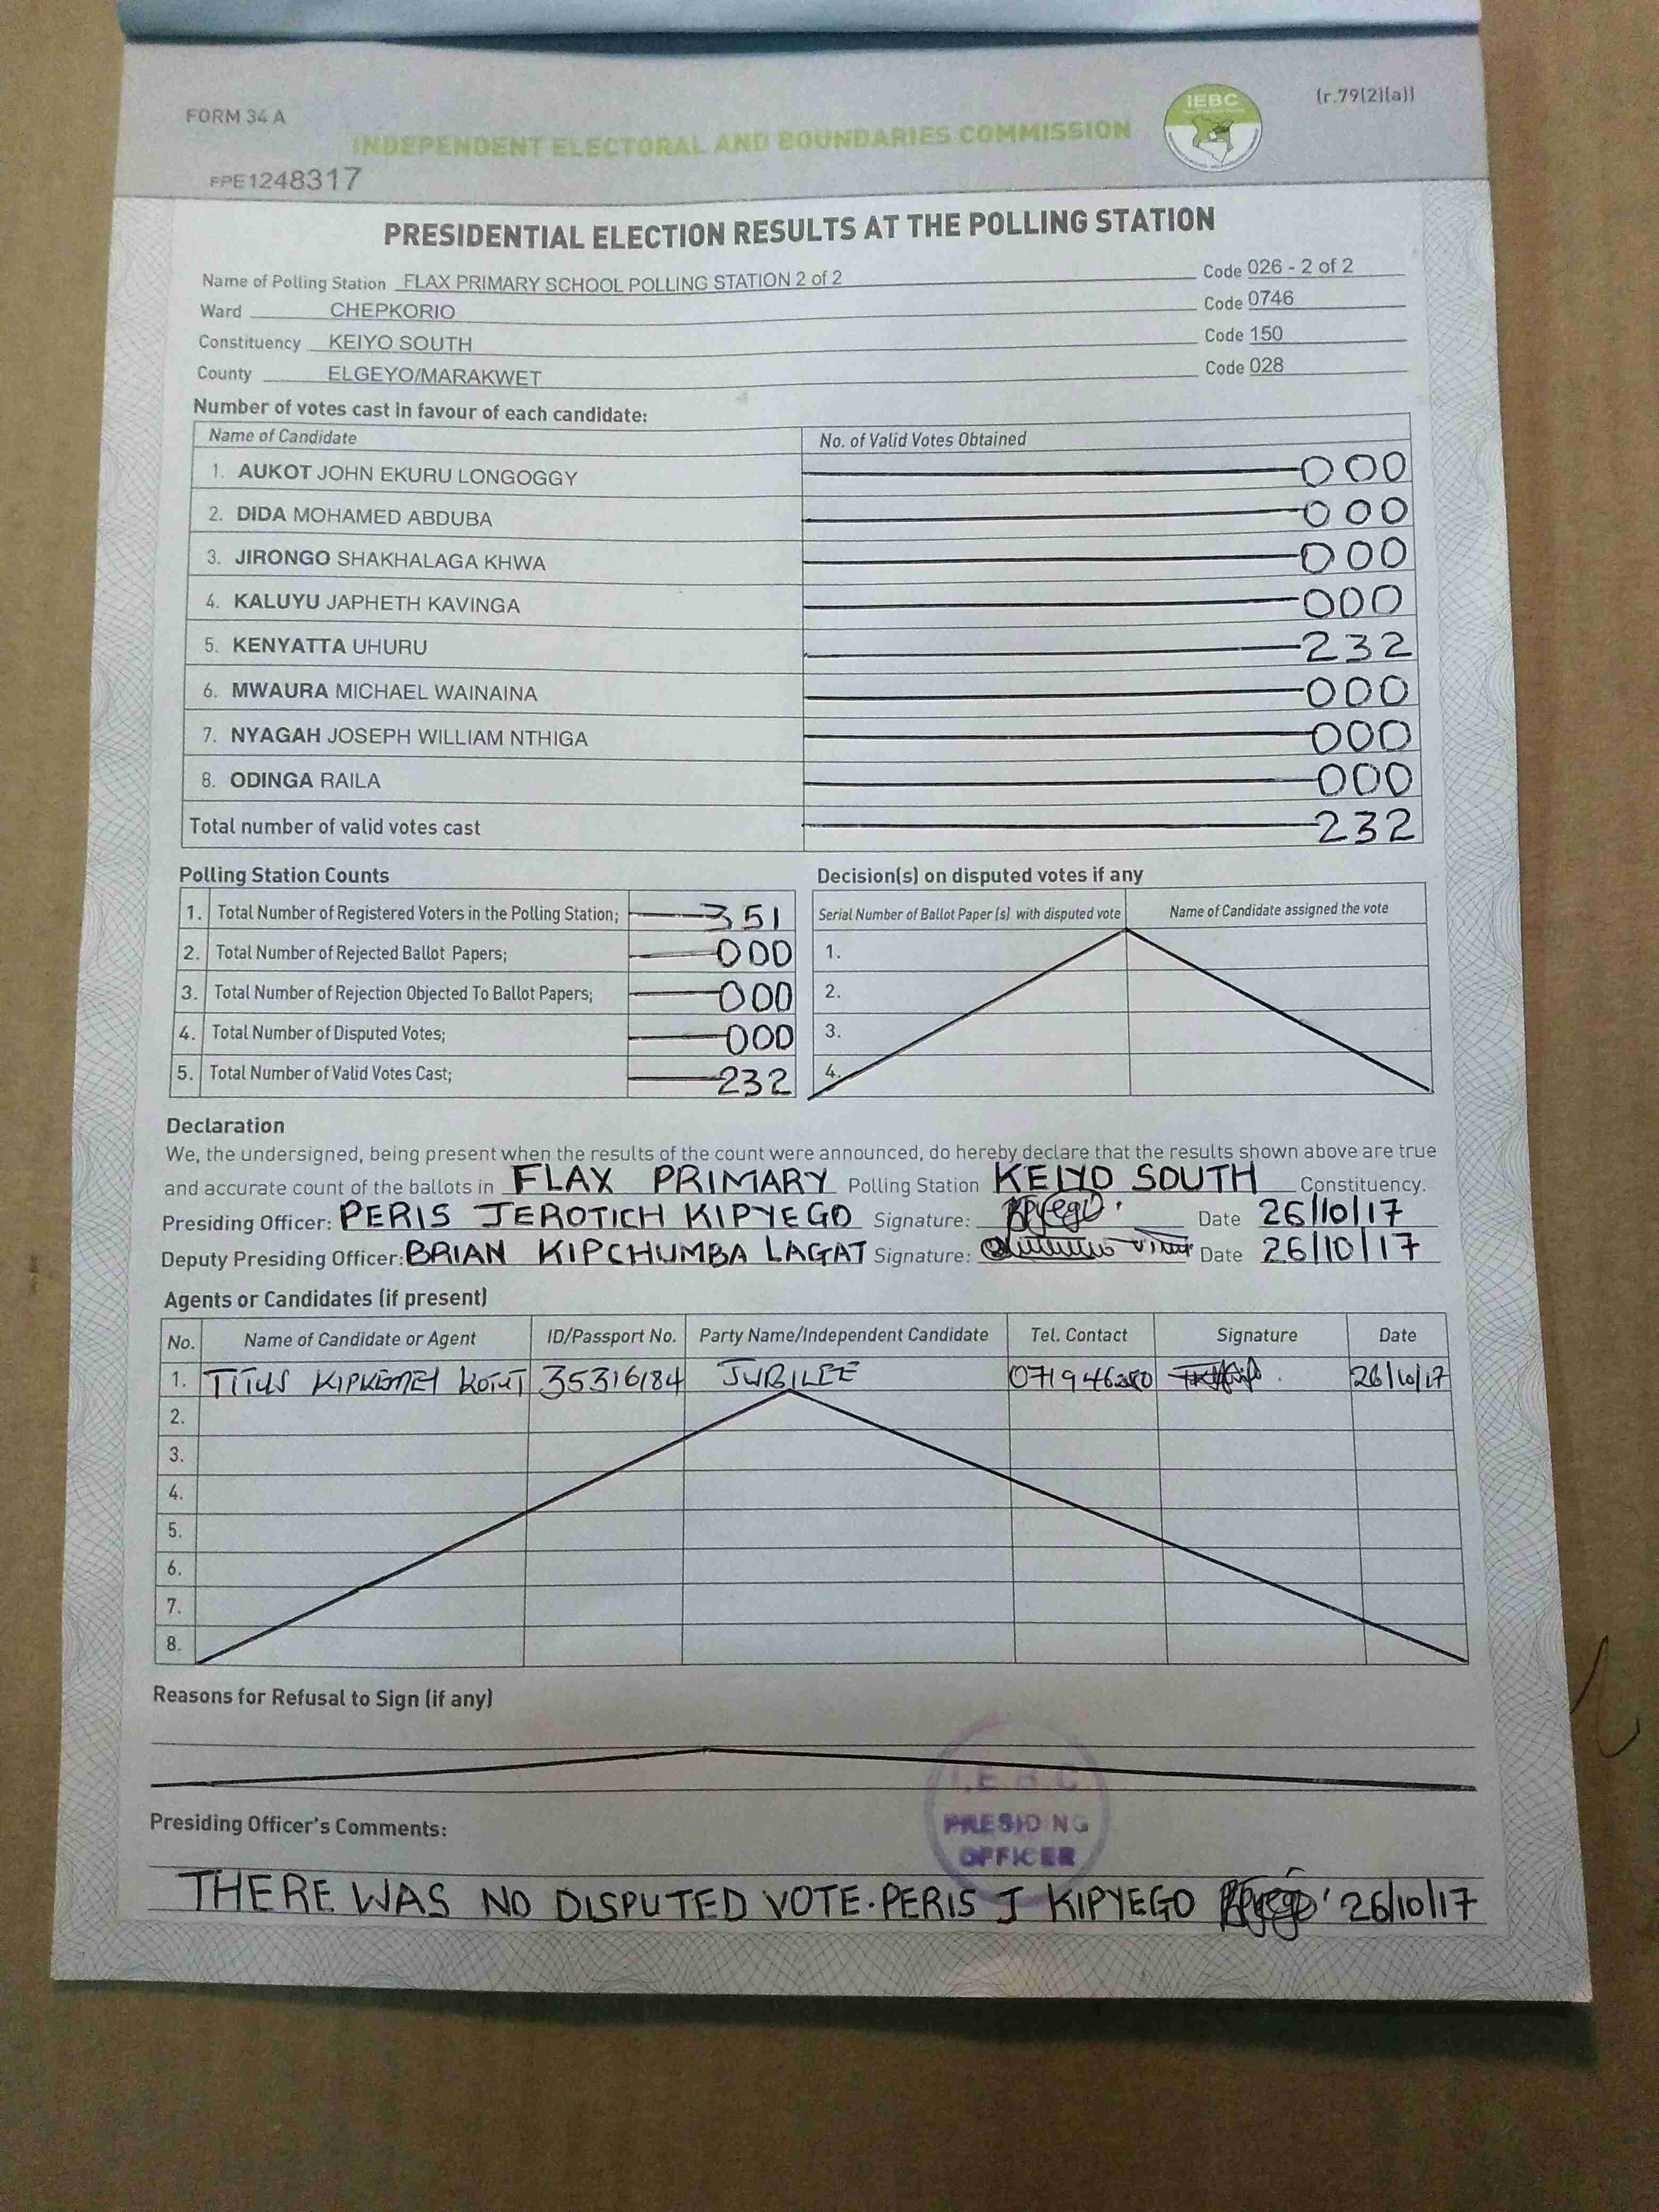 FORM 34 A
(r.79(2)(a))
IEBC
INDEPENDENT ELECTORAL AND BOUNDARIES COMMISSION
FPE1248317
PRESIDENTIAL ELECTION RESULTS AT THE POLLING STATION
Name of Polling Station FLAX PRIMARY SCHOOL POLLING STATION 2 of 2 Code 026 - 2 of 2
Ward CHEPKORIO Code 0746
Constituency KEIYO SOUTH Code 150
County ELGEYO/MARAKWET Code 028
Number of votes cast in favour of each candidate:
Name of Candidate No. of Valid Votes Obtained
1. AUKOT JOHN EKURU LONGOGGY 000
2. DIDA MOHAMED ABDUBA 000
3. JIRONGO SHAKHALAGA KHWA 000
4. KALUYU JAPHETH KAVINGA 000
5. KENYATTA UHURU 232
6. MWAURA MICHAEL WAINAINA 000
7. NYAGAH JOSEPH WILLIAM NTHIGA 000
8. ODINGA RAILA 000
Total number of valid votes cast 232
Polling Station Counts
1. Total Number of Registered Voters in the Polling Station; 351
2. Total Number of Rejected Ballot Papers; 000
3. Total Number of Rejection Objected To Ballot Papers; 000
4. Total Number of Disputed Votes; 000
5. Total Number of Valid Votes Cast; 232
Decision(s) on disputed votes if any
Serial Number of Ballot Paper (s) with disputed vote Name of Candidate assigned the vote
1.
2.
3.
4.
Declaration
We, the undersigned, being present when the results of the count were announced, do hereby declare that the results shown above are true
and accurate count of the ballots in FLAX PRIMARY Polling Station KEIYO SOUTH Constituency.
Presiding Officer: PERIS JEROTICH KIPYEGO Signature: Date 26/10/17
Deputy Presiding Officer: BRIAN KIPCHUMBA LAGAT Signature: Date 26/10/17
Agents or Candidates (if present)
No. Name of Candidate or Agent ID/Passport No. Party Name/Independent Candidate Tel. Contact Signature Date
1. TITUS 35316184 JUBILEE 26/10/17
2.
3.
4.
5.
6.
7.
8.
Reasons for Refusal to Sign (if any)
I.E.B.C.
PRESIDING
OFFICER
Presiding Officer's Comments:
THERE WAS NO DISPUTED VOTE. PERIS J KIPYEGO 26/10/17